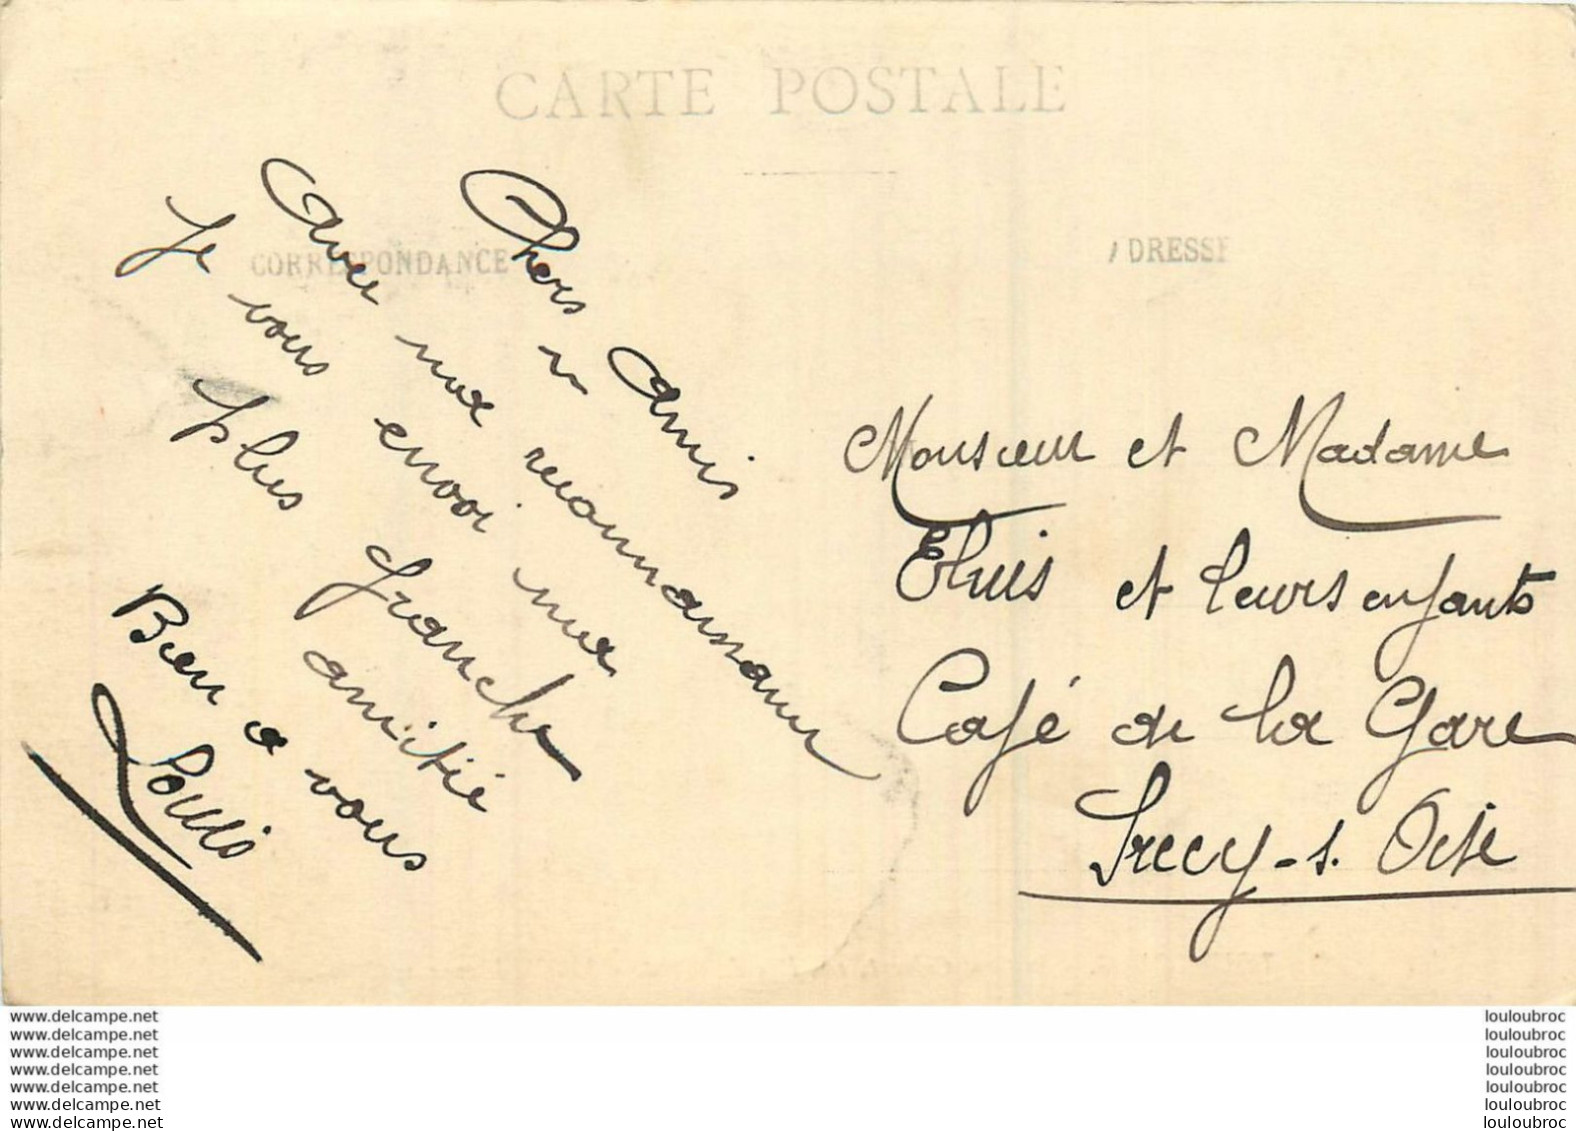 CARTE POSTALE
CORRESPONDANCE
ADRESSE
Chers Amis
Avec ma reconnaissance
Je vous envoi ma
plus franche
amitié
Bien a vous
Louis
Monsieur et Madame
et leurs enfants
Café de la Gare
Precy-s. Oise
www.delcampe.net
www.delcampe.net
www.delcampe.net
www.delcampe.net
www.delcampe.net
www.delcampe.net
www.delcampe.net
louloubroc
louloubroc
louloubroc
louloubroc
louloubroc
louloubroc
louloubroc